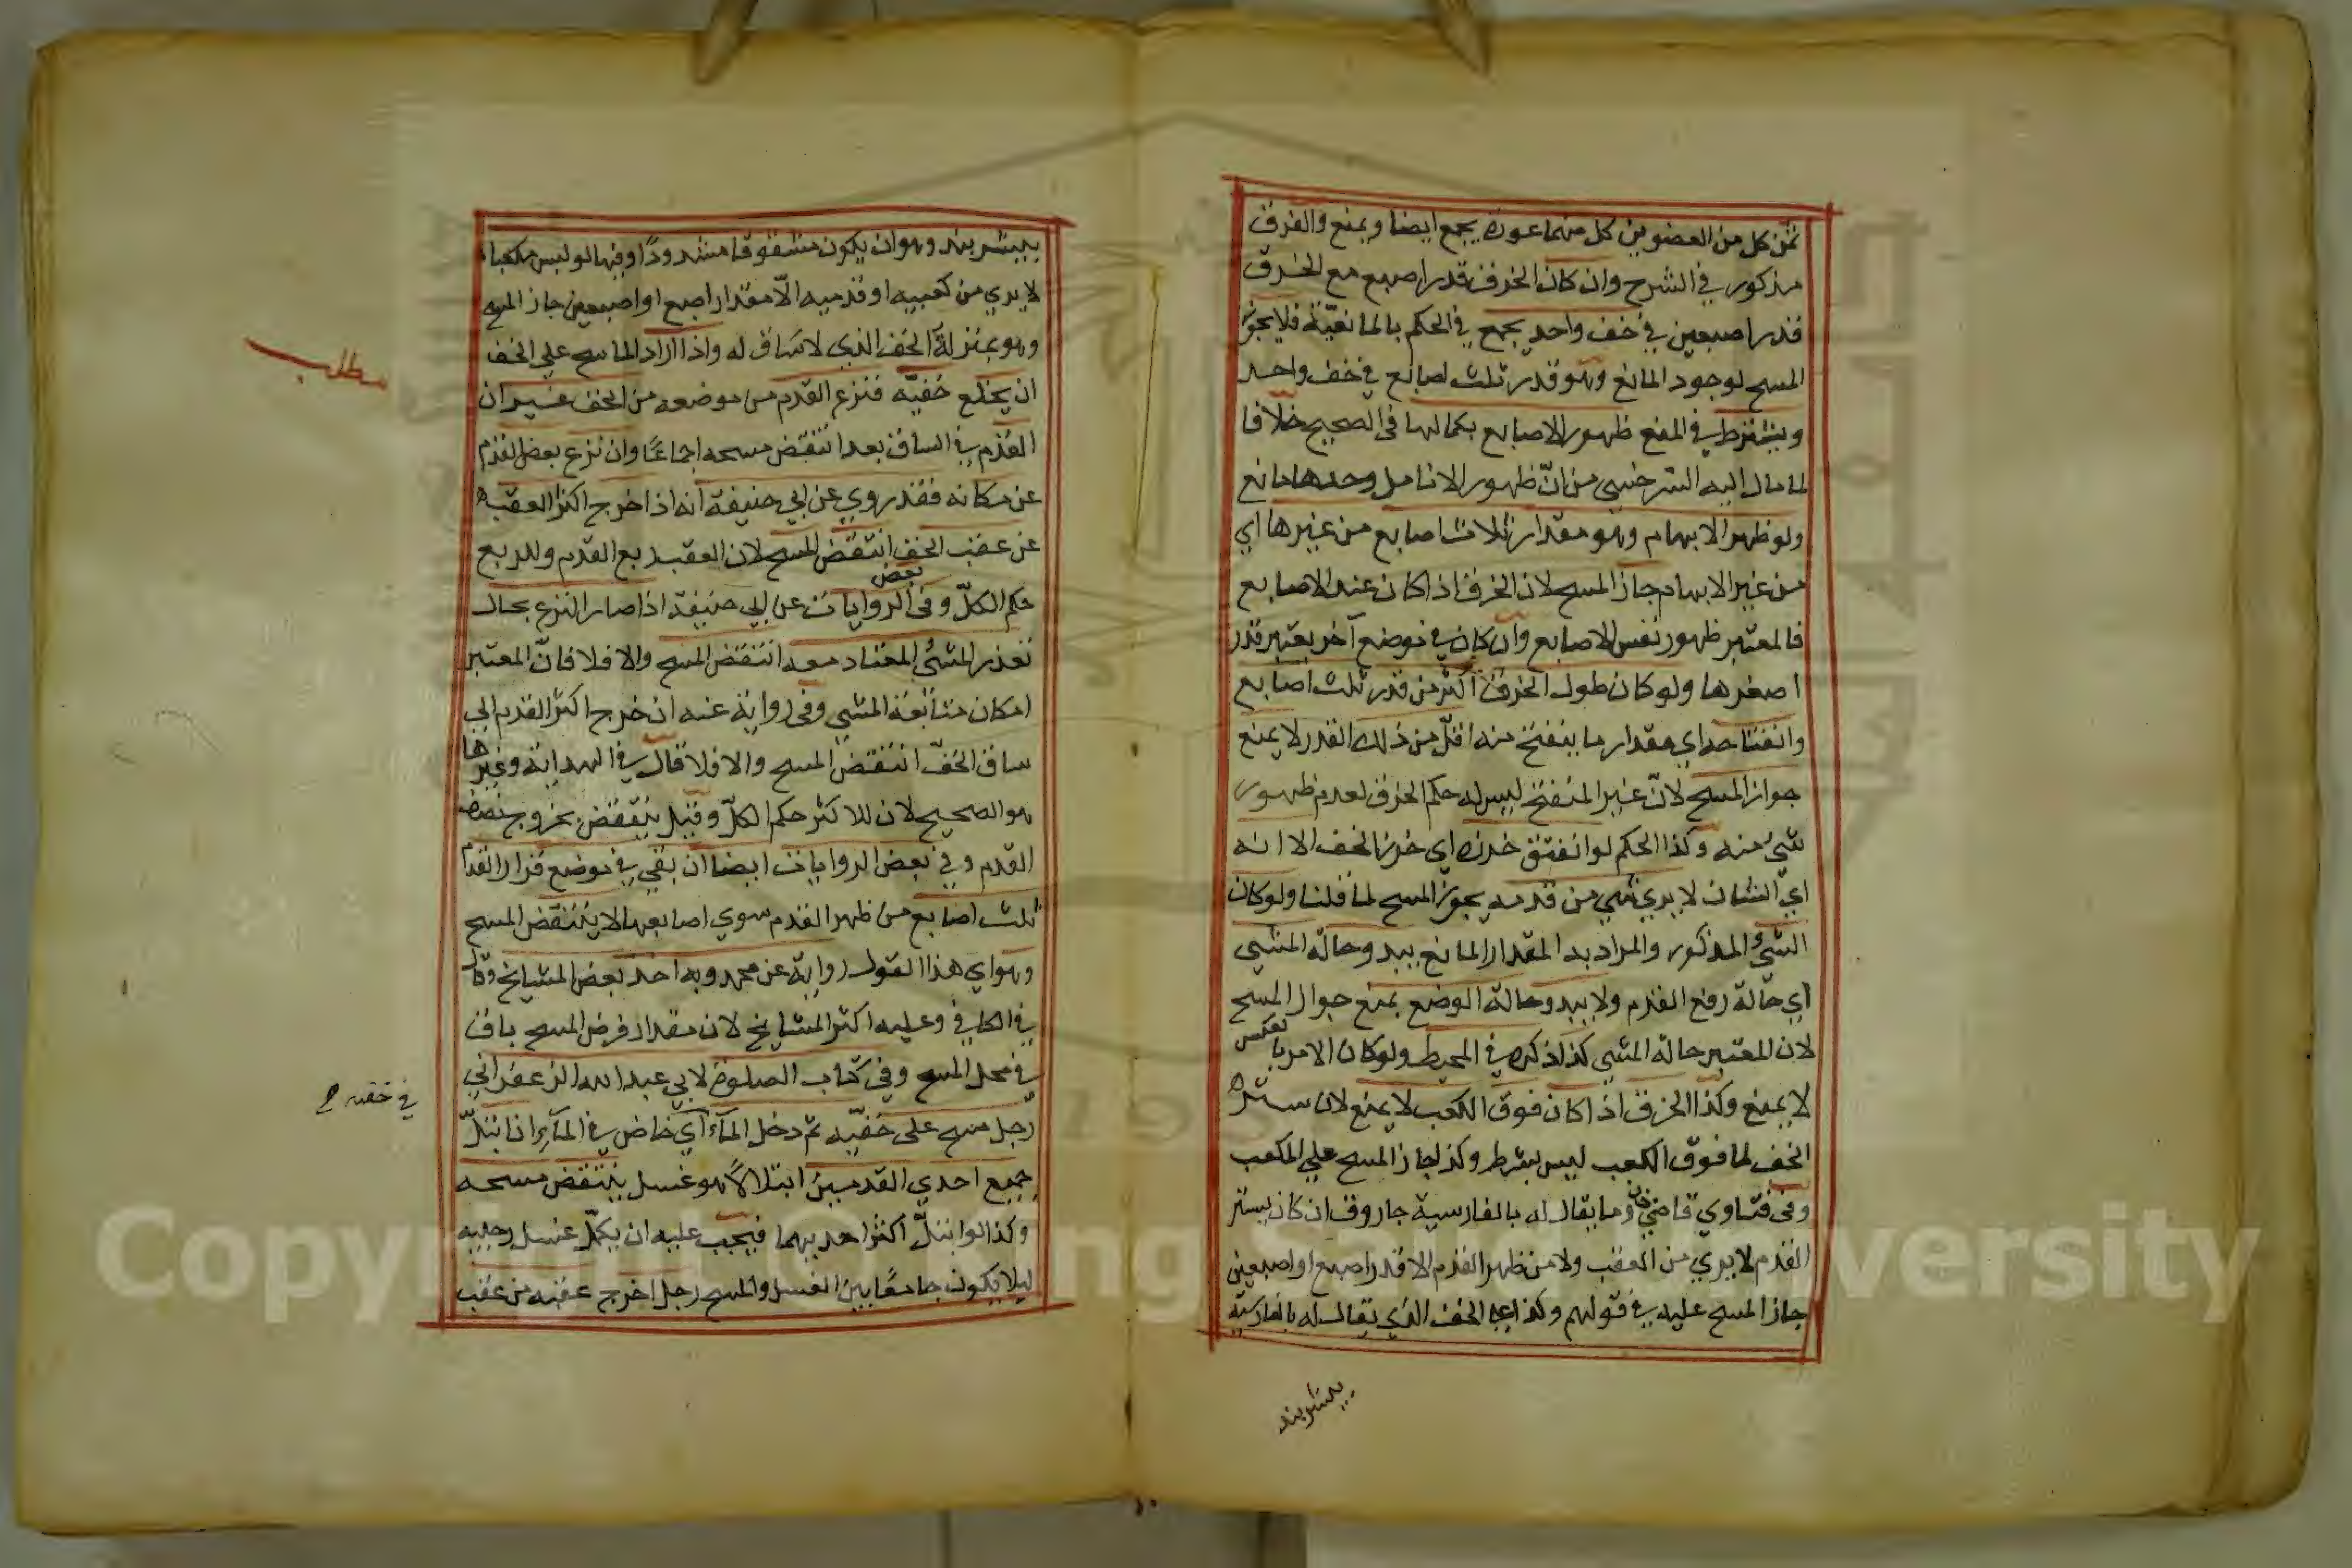 ثمن كل من العضوين كل منهما عورة يجمع ايضا ويمنع والفرق
مذكور في الشرح وان كان الخرق قدر اصبع مع الخرق
قدر اصبعين في خف واحد يجمع في الحكم بالمانعيّة فلا يجوز
المسح لوجود المانع وهو قدر ثلث اصابع في خف واحد
ويشترط في المنع ظهور الاصابع بكمالها في الصحيح خلافا
لما مال اليه السرخسي من انّ ظهور الانامل وحدها مانع
ولو ظهر الابهام وهو مقدار ثلاث اصابع من غيرها اي
من غير الابهام جاز المسح لان الخرق اذا كان عند الاصابع
فالمعتبر ظهور نفس الاصابع وان كان في موضع آخر يعتبر قدر
اصغرها ولو كان طول الخرق اكثر من قدر ثلث اصابع
وانفتاحه اي مقدار ما ينفتح منه اقلّ من ذلك القدر لا يمنع
جواز المسح لانّ غير المنفتح ليس له حكم الخرق لعدم ظهور
شيء منه وكذا الحكم لو انفتق خرزه اي خرز الخف الا انه
ايّ الشان لا يري شيء من قدمه يجوز المسح لما قلنا ولو كان
الشيء المذكور والمراد به المقدار المانع يبدو حالة المشي
اي حالة رفع القدم ولا يبدو حالة الوضع يمنع جواز المسح
لان المعتبر حالة المشي كذا ذكره في المحيط ولو كان الامر بالعكس
لا يمنع وكذا الخرق اذا كان فوق الكعب لا يمنع لان ستره
الخف لما فوق الكعب ليس بشرط وكذا جاز المسح علي المكعب
وفي فتاوي قاضي خان وما يقال له بالفارسية جاروق ان كان يستر
القدم لا يري من العقب ولا من ظهر القدم الا قدر اصبع او اصبعين
جاز المسح عليه في قولهم وكذا علي الخف الذي يقال له بالفارسيّة
بيشربند
بيشربند وهو ان يكون مشقوقا مشدودًا وفيها لو لبس مكعبا
لا يري من كعبيه او قدميه الّا مقدار اصبع او اصبعين جاز المسح
وهو بمنزلة الخف الذي لا ساق له واذا اراد الماسح علي الخف
ان يخلع خفيّه فنزع القدم من موضعه من الخف غير ان
القدم في الساق بعد انتقض مسحه اجماعًا وان نزع بعض القدم
عن مكانه فقد روي عن ابي حنيفة انه اذا خرج اكثر العقب
عن عقب الخف انتقض المسح لان العقب ربع القدم وللربع
حكم الكلّ وفي بعض الروايات عن ابي حنيفة اذا صار النزع بحال
تعذر المشي المعتاد معه انتقض المسح والا فلا فانّ المعتبر
امكان متابعة المشي وفي رواية عنه ان خرج اكثر القدم الي
ساق الخفّ انتقض المسح والا فلا قال في الهداية وغيرها
هو الصحيح لان للاكثر حكم الكلّ وقيل ينتقض بخروج نصف
القدم وفي بعض الروايات ايضا ان بقي في موضع قرار القدم
ثلث اصابع من ظهر القدم سوي اصابعها لا ينتقض المسح
وهو اي هذا القول رواية عن محمد وبه اخذ بعض المشايخ وقال
في الكافي وعليه اكثر المشايخ لان مقدار فرض المسح باق
في محل المسح وفي كتاب الصلوة لابي عبد الله الزعفراني
رجل مسح على خفيّه ثم دخل الماء اي خاض في المآء اذا ابتلّ
جميع احدي القدمين ابتلالًا هو غسل ينتقض مسحه
وكذا لو ابتلّ اكثر احديهما فيجب عليه ان يكمّل غسل رجليه
ليلا يكون جامعًا بين الغسل والمسح رجل اخرج عقبه من عقب
مطلب
في خفه
Copyright © King Saud University